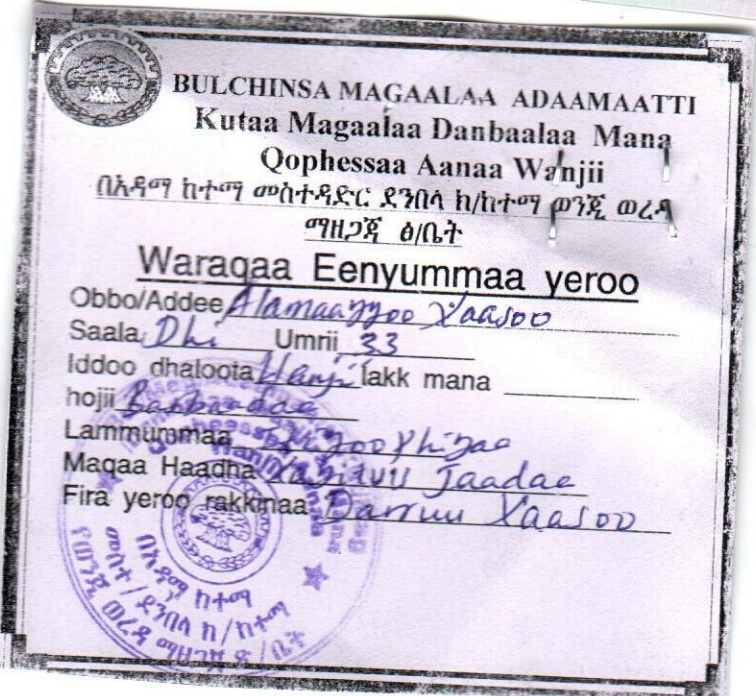 BULCHINSA MAGAALAA ADAAMAATTI
Kutaa Magaalaa Danbaalaa Mana
Qophessaa Aanaa Wanjii
በአዳማ ከተማ መስተዳድር ደንበላ ክ/ከተማ ወንጂ ወረዳ
ማዘጋጃ ፅ/ቤት
Waraqaa Eenyummaa yeroo
Obbo/Addee Alamaayyoo Yaasoo
Saala Dhi Umrii 33
Iddoo dhaloota Wanji lakk mana
hojii
Lammummaa
Maqaa Haadha Jaadae
Fira yeroo rakkinaa Darruu Yaasoo
በአዳማ ከተማ
መስተ/ደንበላ ክ/ከተማ
የወንጂ ወረዳ ማዘጋጃ ፅ/ቤት